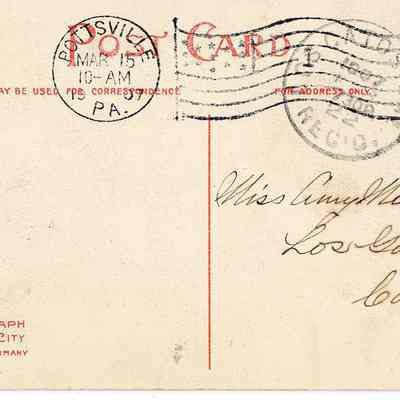 POST CARD
POTTSVILLE
MAR 15
10-AM
19 07
PA.
1
1907
REC'D.
MAY BE USED FOR CORRESPONDENCE
FOR ADDRESS ONLY.
Miss Amy Me
Los Ga
Ca
APH
CITY
RMANY